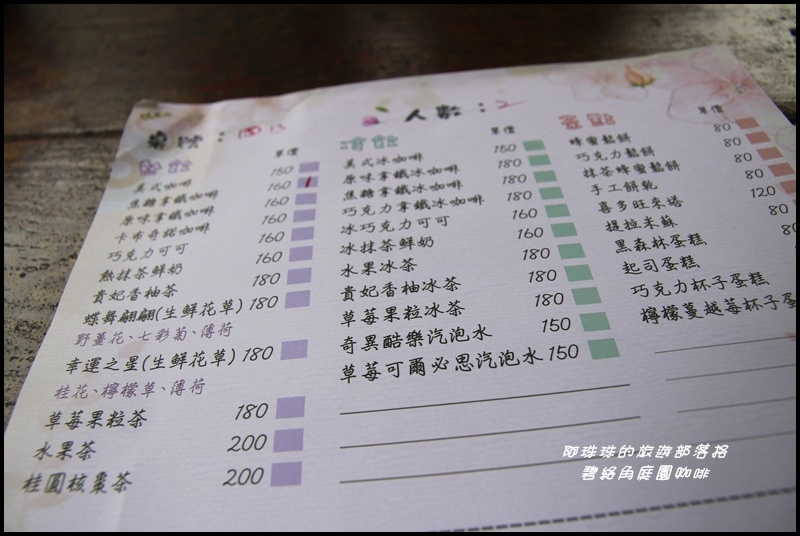 桌號：13
人數：2
熱飲 單價
美式咖啡 150
焦糖拿鐵咖啡 160
原味拿鐵咖啡 160
卡布奇諾咖啡 160
巧克力可可 160
熱抹茶鮮奶 160
貴妃香柚茶 180
蝶舞翩翩(生鮮花草) 180
野薑花、七彩菊、薄荷
幸運之星(生鮮花草) 180
桂花、檸檬草、薄荷
草莓果粒茶 180
水果茶 200
桂圓核棗茶 200
冷飲 單價
美式冰咖啡 150
原味拿鐵冰咖啡 180
焦糖拿鐵冰咖啡 180
巧克力拿鐵冰咖啡 180
冰巧克力可可 160
冰抹茶鮮奶 160
水果冰茶 180
貴妃香柚冰茶 180
草莓果粒冰茶 180
奇異酷樂汽泡水 150
草莓可爾必思汽泡水 150
茶點 單價
蜂蜜鬆餅 80
巧克力鬆餅 80
抹茶蜂蜜鬆餅 80
手工餅乾 80
喜多旺來塔 120
提拉米蘇 80
黑森林蛋糕 80
起司蛋糕
巧克力杯子蛋糕
檸檬蔓越莓杯子蛋糕
阿珠珠的旅遊部落格
碧絡角庭園咖啡